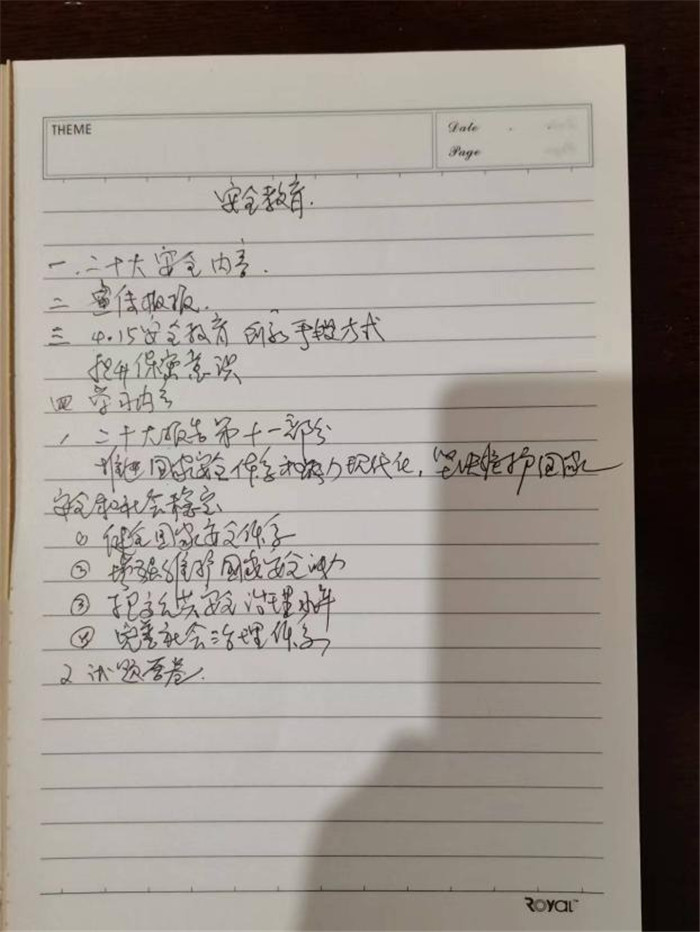 THEME
Date
Page
安全教育.
一.二十大安全内容.
二 宣传报板.
三 4.15安全教育 创新手段方式
提升保密意识
四 学习内容
1 二十大报告第十一部分
推进国家安全体系和能力现代化,坚决维护国家
安全和社会稳定
① 健全国家安全体系
② 增强维护国家安全能力
③ 提高公共安全治理水平
④ 完善社会治理体系
2 试题答卷.
ROYAL